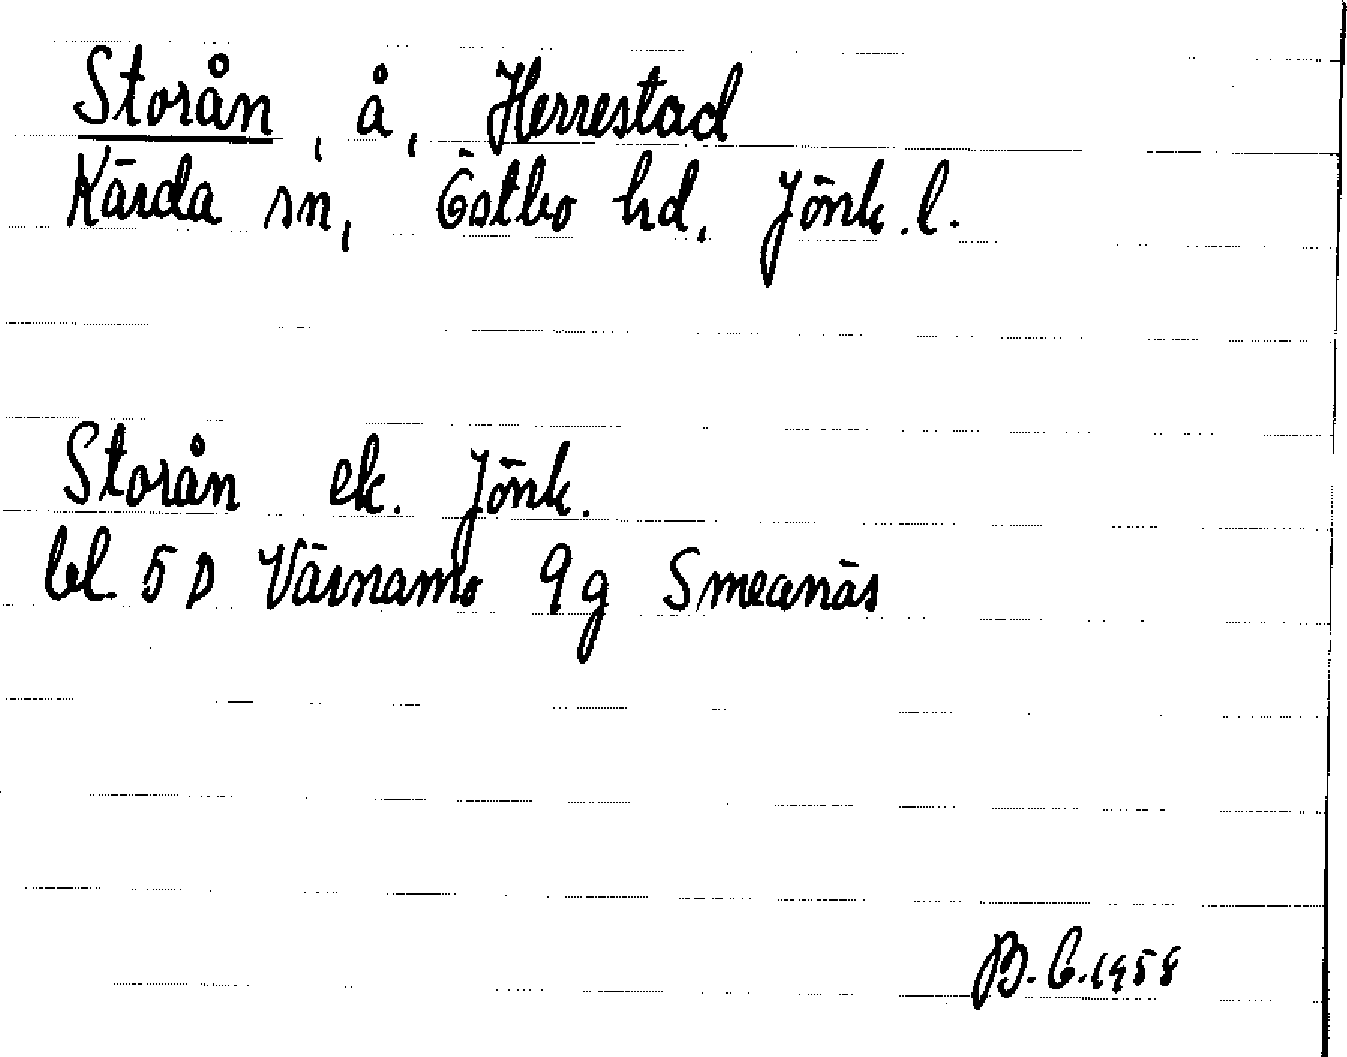 Storån, å, Herrestad
Kärda sn, Östbo hd, Jönk.l.
Storån ek. Jönk.
bl 5 D Värnamo 9g Smeanäs
B. C. 1958